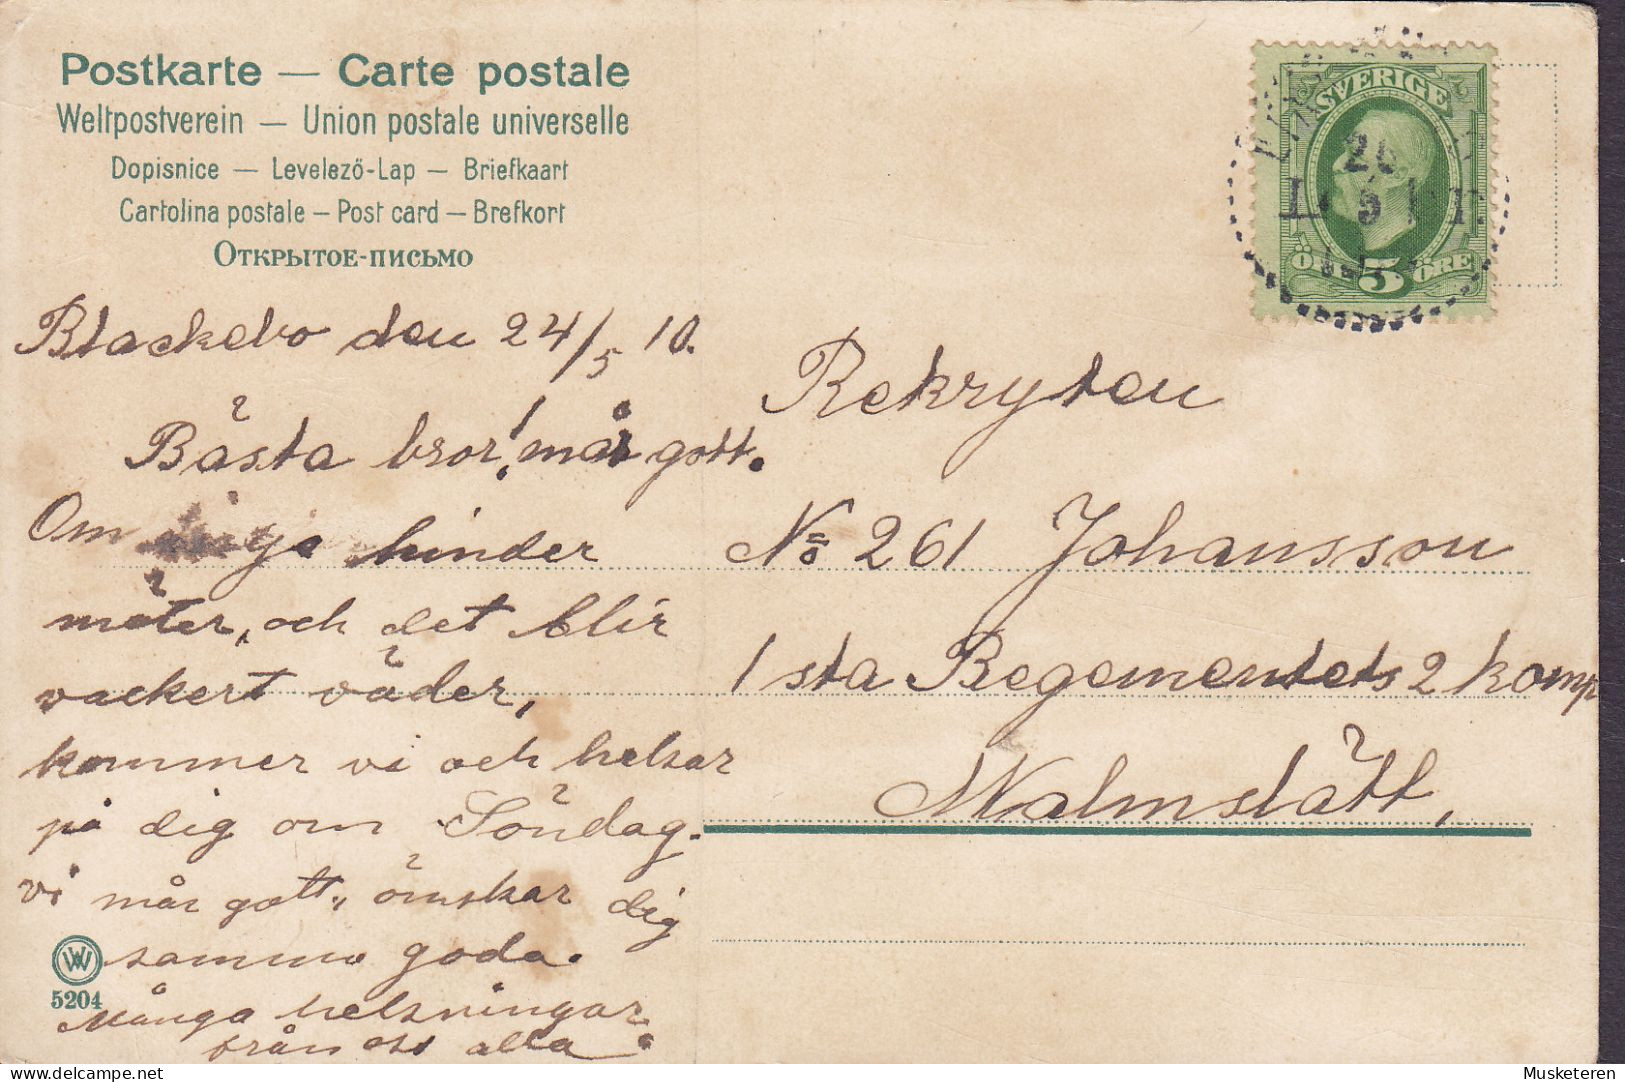 Postkarte — Carte postale
Weltpostverein — Union postale universelle
Dopisnice — Levelező-Lap — Briefkaart
Cartolina postale — Post card — Brefkort
Открытое-письмо
SVERIGE
5 ÖRE
Blackebo den 24/5 10.
Bästa bror! mår gott.
Om inga hinder
möter, och det blir
vackert väder,
kommer vi och helsar
på dig om Söndag.
vi mår gott, önskar dig
samma goda.
Många helsningar
från oss alla
Rekryten
No 261 Johansson
1sta Regementets 2 komp
Malmslätt,
5204
Musketeren
delcampe.net